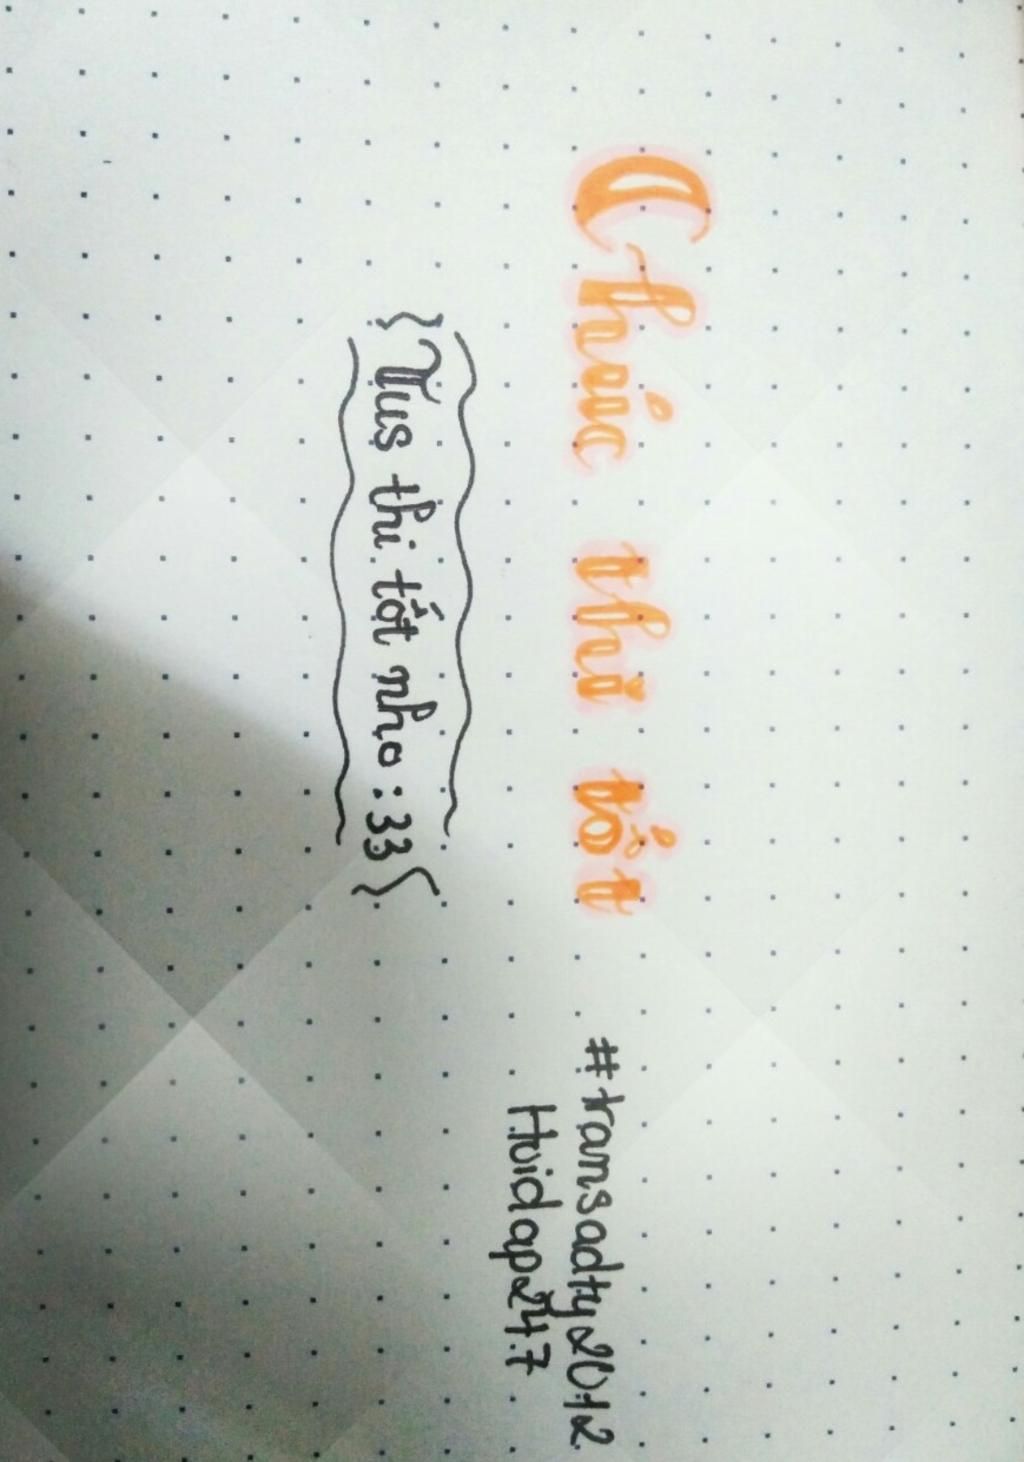 Chúc thi tốt
#transadty2012
Hoidap247
{Tus thi tốt nho :33}